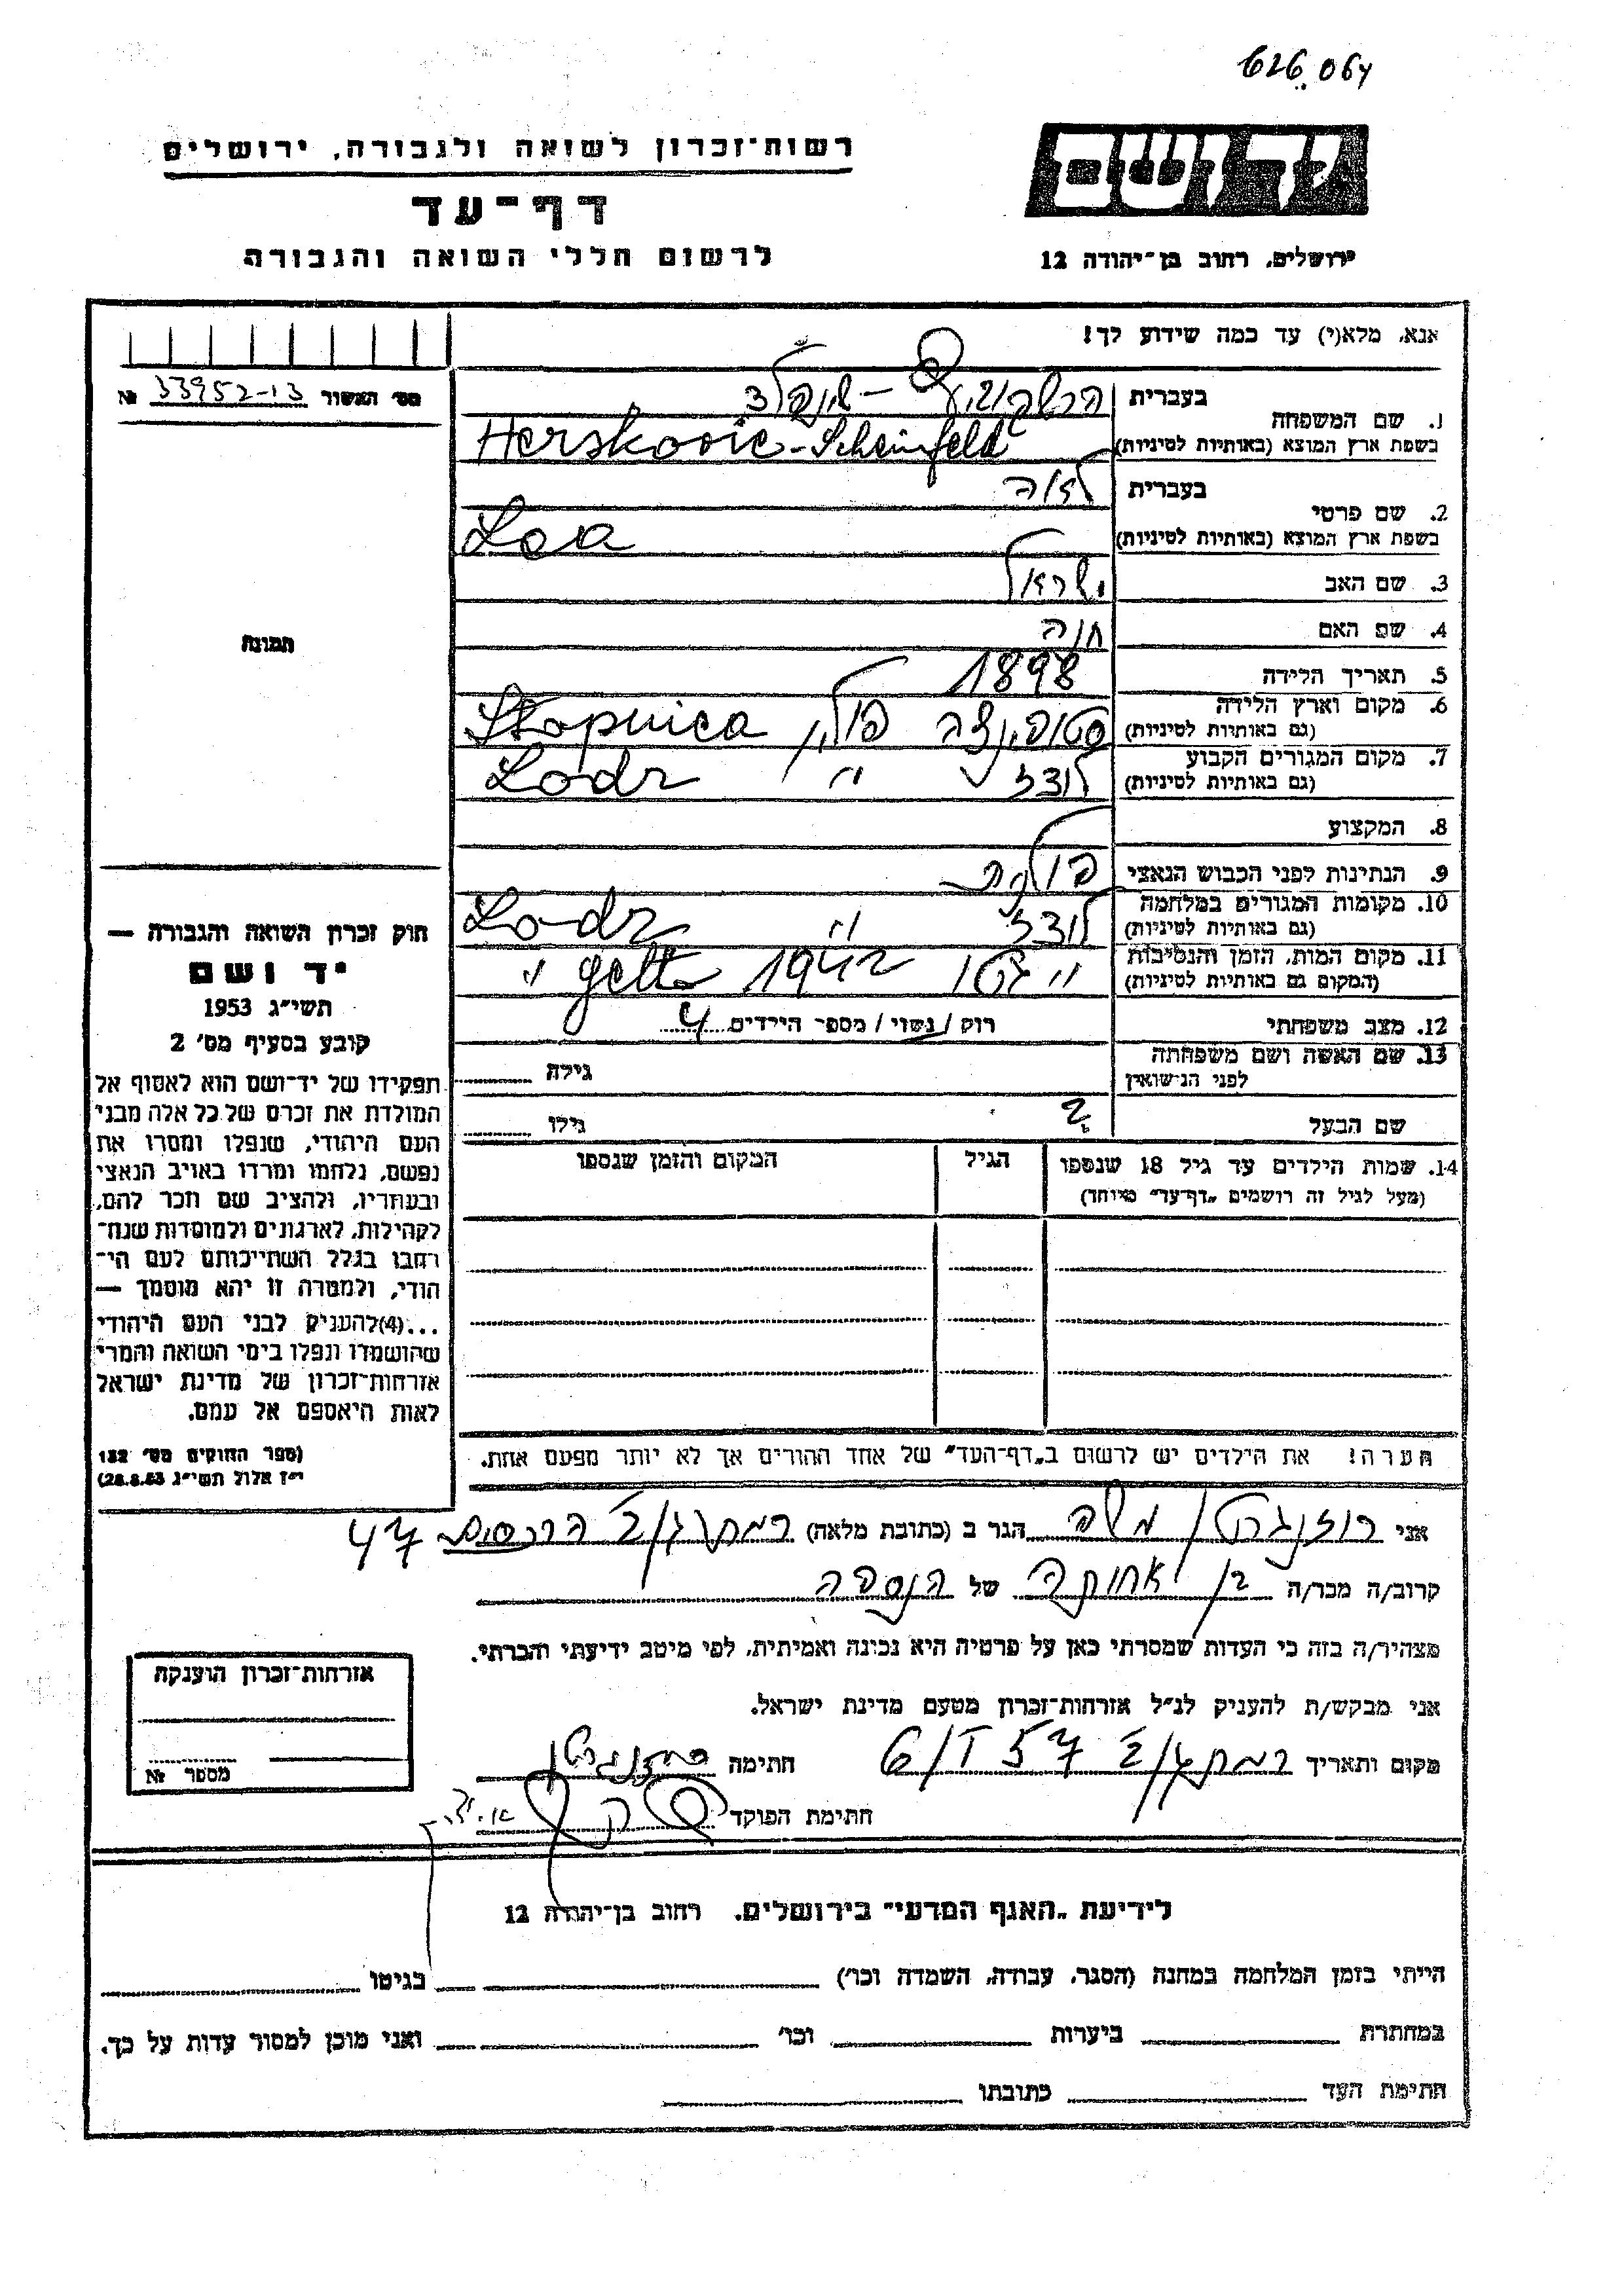 626.064
יד ושם
ירושלים, רחוב בן־יהודה 12
רשות־זכרון לשואה ולגבורה, ירושלים
דף־עד
לרשום חללי השואה והגבורה
אנא, מלא(י) עד כמה שידוע לך!
מס' האשור 33952-13 №
תמונה
1. שם המשפחה
בעברית הרשקוביץ - שינפלד
בשפת ארץ המוצא (באותיות לטיניות) Herskovic - Scheinfeld
2. שם פרטי
בעברית לאה
בשפת ארץ המוצא (באותיות לטיניות) Lea
3. שם האב ישראל
4. שם האם חנה
5. תאריך הלידה 1898
6. מקום וארץ הלידה סטופניצה פולין Stopnica
(גם באותיות לטיניות)
7. מקום המגורים הקבוע לודז " Lodz
(גם באותיות לטיניות)
8. המקצוע
9. הנתינות לפני הכבוש הנאצי פולנית
10. מקומות המגורים במלחמה לודז " Lodz
(גם באותיות לטיניות)
11. מקום המות, הזמן והנסיבות " גטו 1942 getto "
(המקום גם באותיות לטיניות)
12. מצב משפחתי רוק / נשוי / מספר הילדים 4
13. שם האשה ושם משפחתה גילה
לפני הנישואין
שם הבעל ? גילו
14. שמות הילדים עד גיל 18 שנספו הגיל המקום והזמן שנספו
(מעל לגיל זה רושמים "דף־עד" מיוחד)
הערה! את הילדים יש לרשום ב"דף־העד" של אחד ההורים אך לא יותר מפעם אחת.
חוק זכרון השואה והגבורה —
יד ושם
תשי"ג 1953
קובע בסעיף מס' 2
תפקידו של יד־ושם הוא לאסוף אל
המולדת את זכרם של כל אלה מבני
העם היהודי, שנפלו ומסרו את
נפשם, נלחמו ומרדו באויב הנאצי
ובעוזריו, ולהציב שם וזכר להם,
לקהילות, לארגונים ולמוסדות שנח־
רחבו בגלל השתייכותם לעם הי־
הודי, ולמטרה זו יהא מוסמך —
...(4) להעניק לבני העם היהודי
שהושמדו ונפלו בימי השואה והמרי
אזרחות־זכרון של מדינת ישראל
לאות היאספם אל עמם.
(ספר החוקים מס' 132
י"ז אלול תשי"ג 28.8.53)
אני רוזנגרטן משה הגר ב (כתובת מלאה) רמת גן 47
קרוב/ה מכר/ה בן אחותה של הנספה
מצהיר/ה בזה כי העדות שמסרתי כאן על פרטיה היא נכונה ואמיתית, לפי מיטב ידיעתי והכרתי.
אני מבקש/ת להעניק לנ"ל אזרחות־זכרון מטעם מדינת ישראל.
מקום ותאריך רמת גן חתימה רוזנגרטן
חתימת הפוקד
אזרחות־זכרון הוענקה
מספר №
לידיעת "האגף המדעי" בירושלים, רחוב בן־יהודה 12
הייתי בזמן המלחמה במחנה (הסגר, עבודה, השמדה וכו') בגיטו
במחתרת ביערות וכו' ואני מוכן למסור עדות על כך.
חתימת העד כתובתו